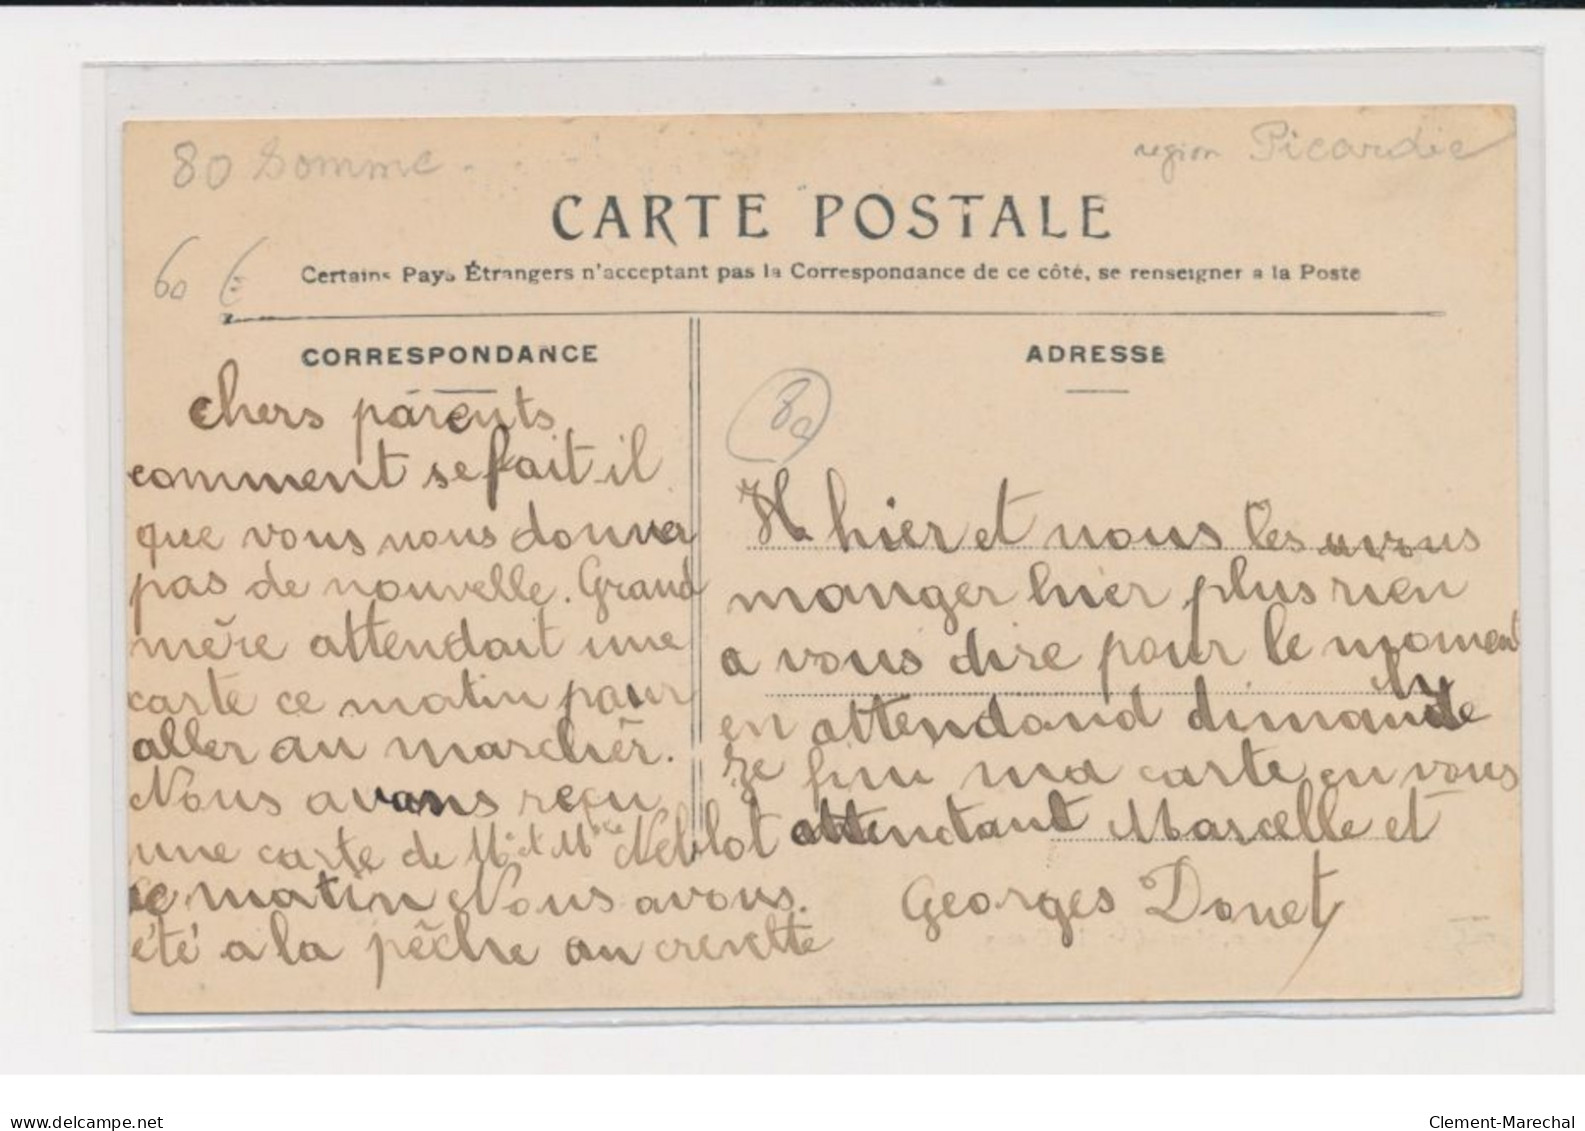 80 Somme
region Picardie
CARTE POSTALE
60 €
Certains Pays Étrangers n'acceptant pas la Correspondance de ce côté, se renseigner a la Poste
CORRESPONDANCE
chers parents
comment se fait-il
que vous nous donner
pas de nouvelle. Grand
mère attendait une
carte ce matin pour
aller au marcher.
Nous avons reçu
une carte de Mr et Mme Neblot
ce matin Nous avons
été a la pêche au crevette
ADRESSE
80
hier et nous les avons
manger hier plus rien
a vous dire pour le moment
en attendand dimanche
je fini ma carte en vous
attendant Marcelle et
Georges Donet
www.delcampe.net
Clement-Marechal